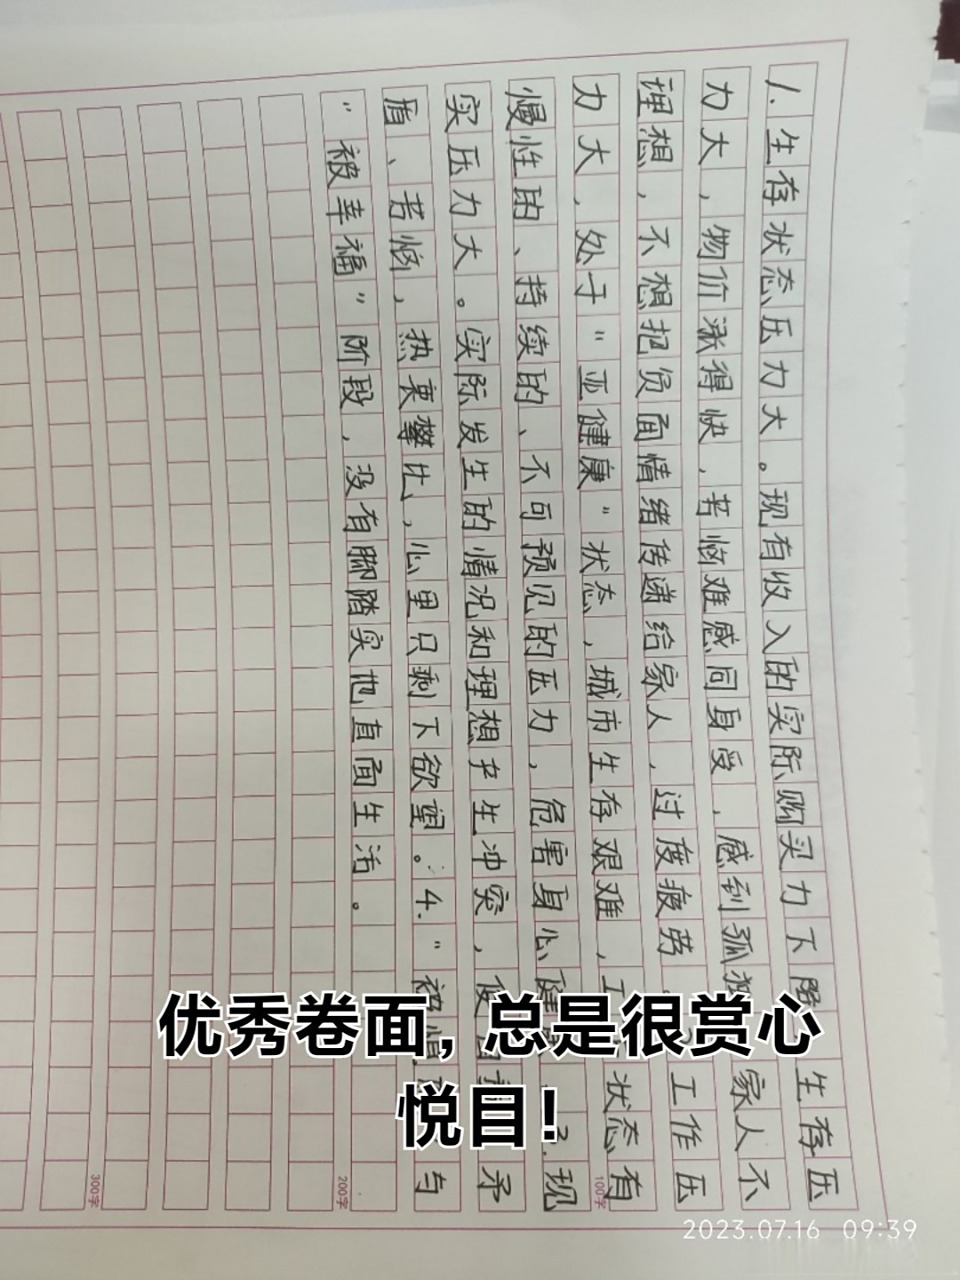 1.生存状态压力大。现有收入的实际购买力下降 生存压
力大,物价涨得快,苦恼难感同身受,感到孤独 家人不
理想,不想把负面情绪传递给家人,过度疲劳 工作压
力大,处于"亚健康"状态,城市生存艰难,工 状态有
慢性的、持续的、不可预见的压力,危害身心健 3.现
实压力大。实际发生的情况和理想产生冲突,使 矛
盾、苦恼,热衷攀比,心里只剩下欲望。4."被 与
"被幸福"阶段,没有脚踏实地直面生活。
100字
200字
300字
优秀卷面,总是很赏心
悦目!
2023.07.16 09:39